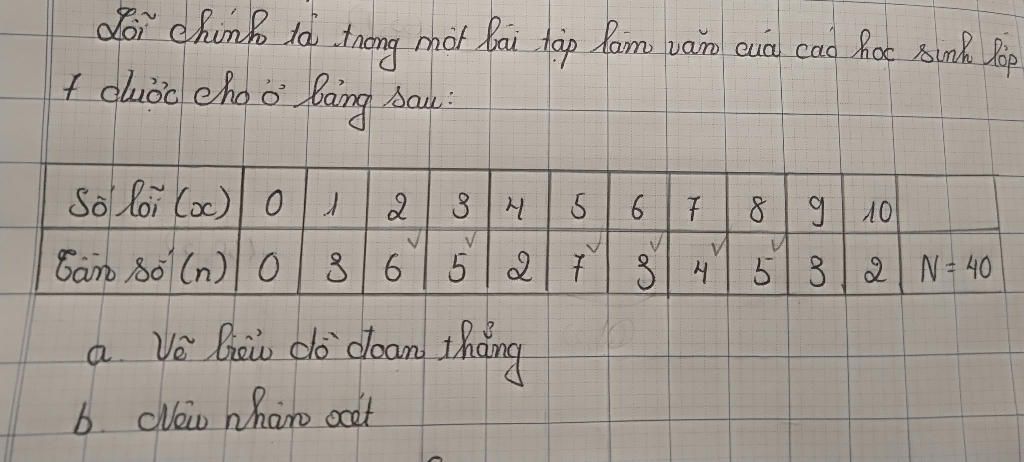 Lỗi chính tả trong một bài tập làm văn của các học sinh lớp
7 được cho ở bảng sau:
Số lỗi (x) 0 1 2 3 4 5 6 7 8 9 10
Tần số (n) 0 3 6 5 2 7 3 4 5 3 2 N = 40
a. Vẽ biểu đồ đoạn thẳng
b. Nêu nhận xét